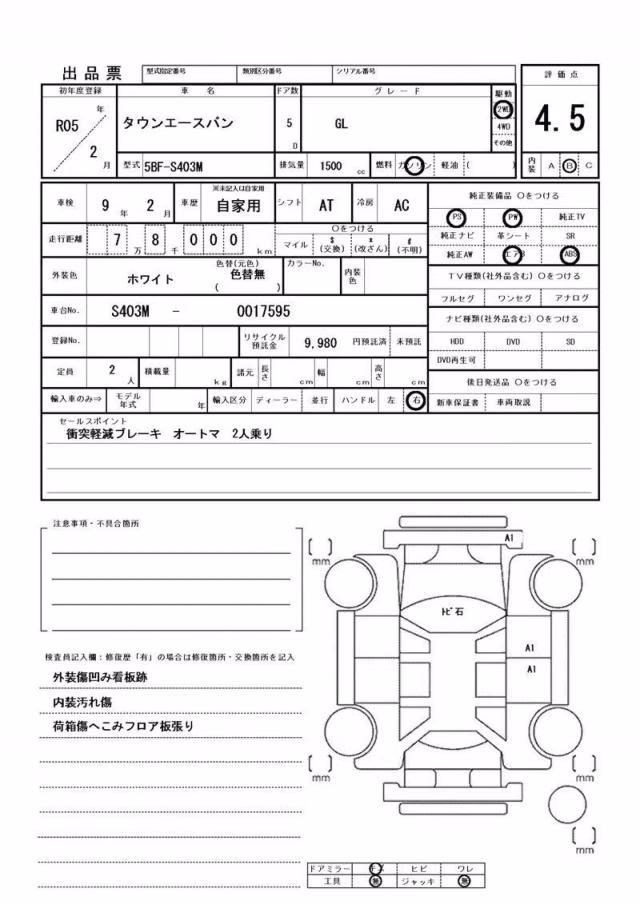 出品票 型式指定番号 類別区分番号 シリアル番号
評価点
4.5
内装 A B C
初年度登録 車名 ドア数 グレード 駆動
R05 年 2 月
タウンエースバン 5 D GL
2WD
4WD
その他
型式 5BF-S403M 排気量 1500 cc 燃料 ガソリン 軽油 ( )
車検 9 年 2 月 車歴 ※未記入は自家用 自家用 シフト AT 冷房 AC
走行距離 7 万 8 千 0 0 0 km
○をつける
マイル $ (交換) x (改ざん) # (不明)
外装色 ホワイト 色替(元色) 色替無 ( ) カラーNo. 内装色
車台No. S403M - 0017595
登録No. リサイクル預託金 9,980 円預託済 未預託
定員 2 人 積載量 kg 諸元 長さ cm 幅 cm 高さ cm
輸入車のみ⇒ モデル年式 年 輸入区分 ディーラー 並行 ハンドル 左 右
純正装備品 ○をつける
PS PW 純正TV
純正ナビ 革シート SR
純正AW エアB ABS
TV種類(社外品含む) ○をつける
フルセグ ワンセグ アナログ
ナビ種類(社外品含む) ○をつける
HDD DVD SD
DVD再生可
後日発送品 ○をつける
新車保証書 車両取説
セールスポイント
衝突軽減ブレーキ オートマ 2人乗り
注意事項・不具合箇所
検査員記入欄:修復歴「有」の場合は修復箇所・交換箇所を記入
外装傷凹み看板跡
内装汚れ傷
荷箱傷へこみフロア板張り
A1
mm
mm
トビ石
A1
A1
mm
mm
mm
ドアミラー ヒビ ワレ
工具 無 ジャッキ 無